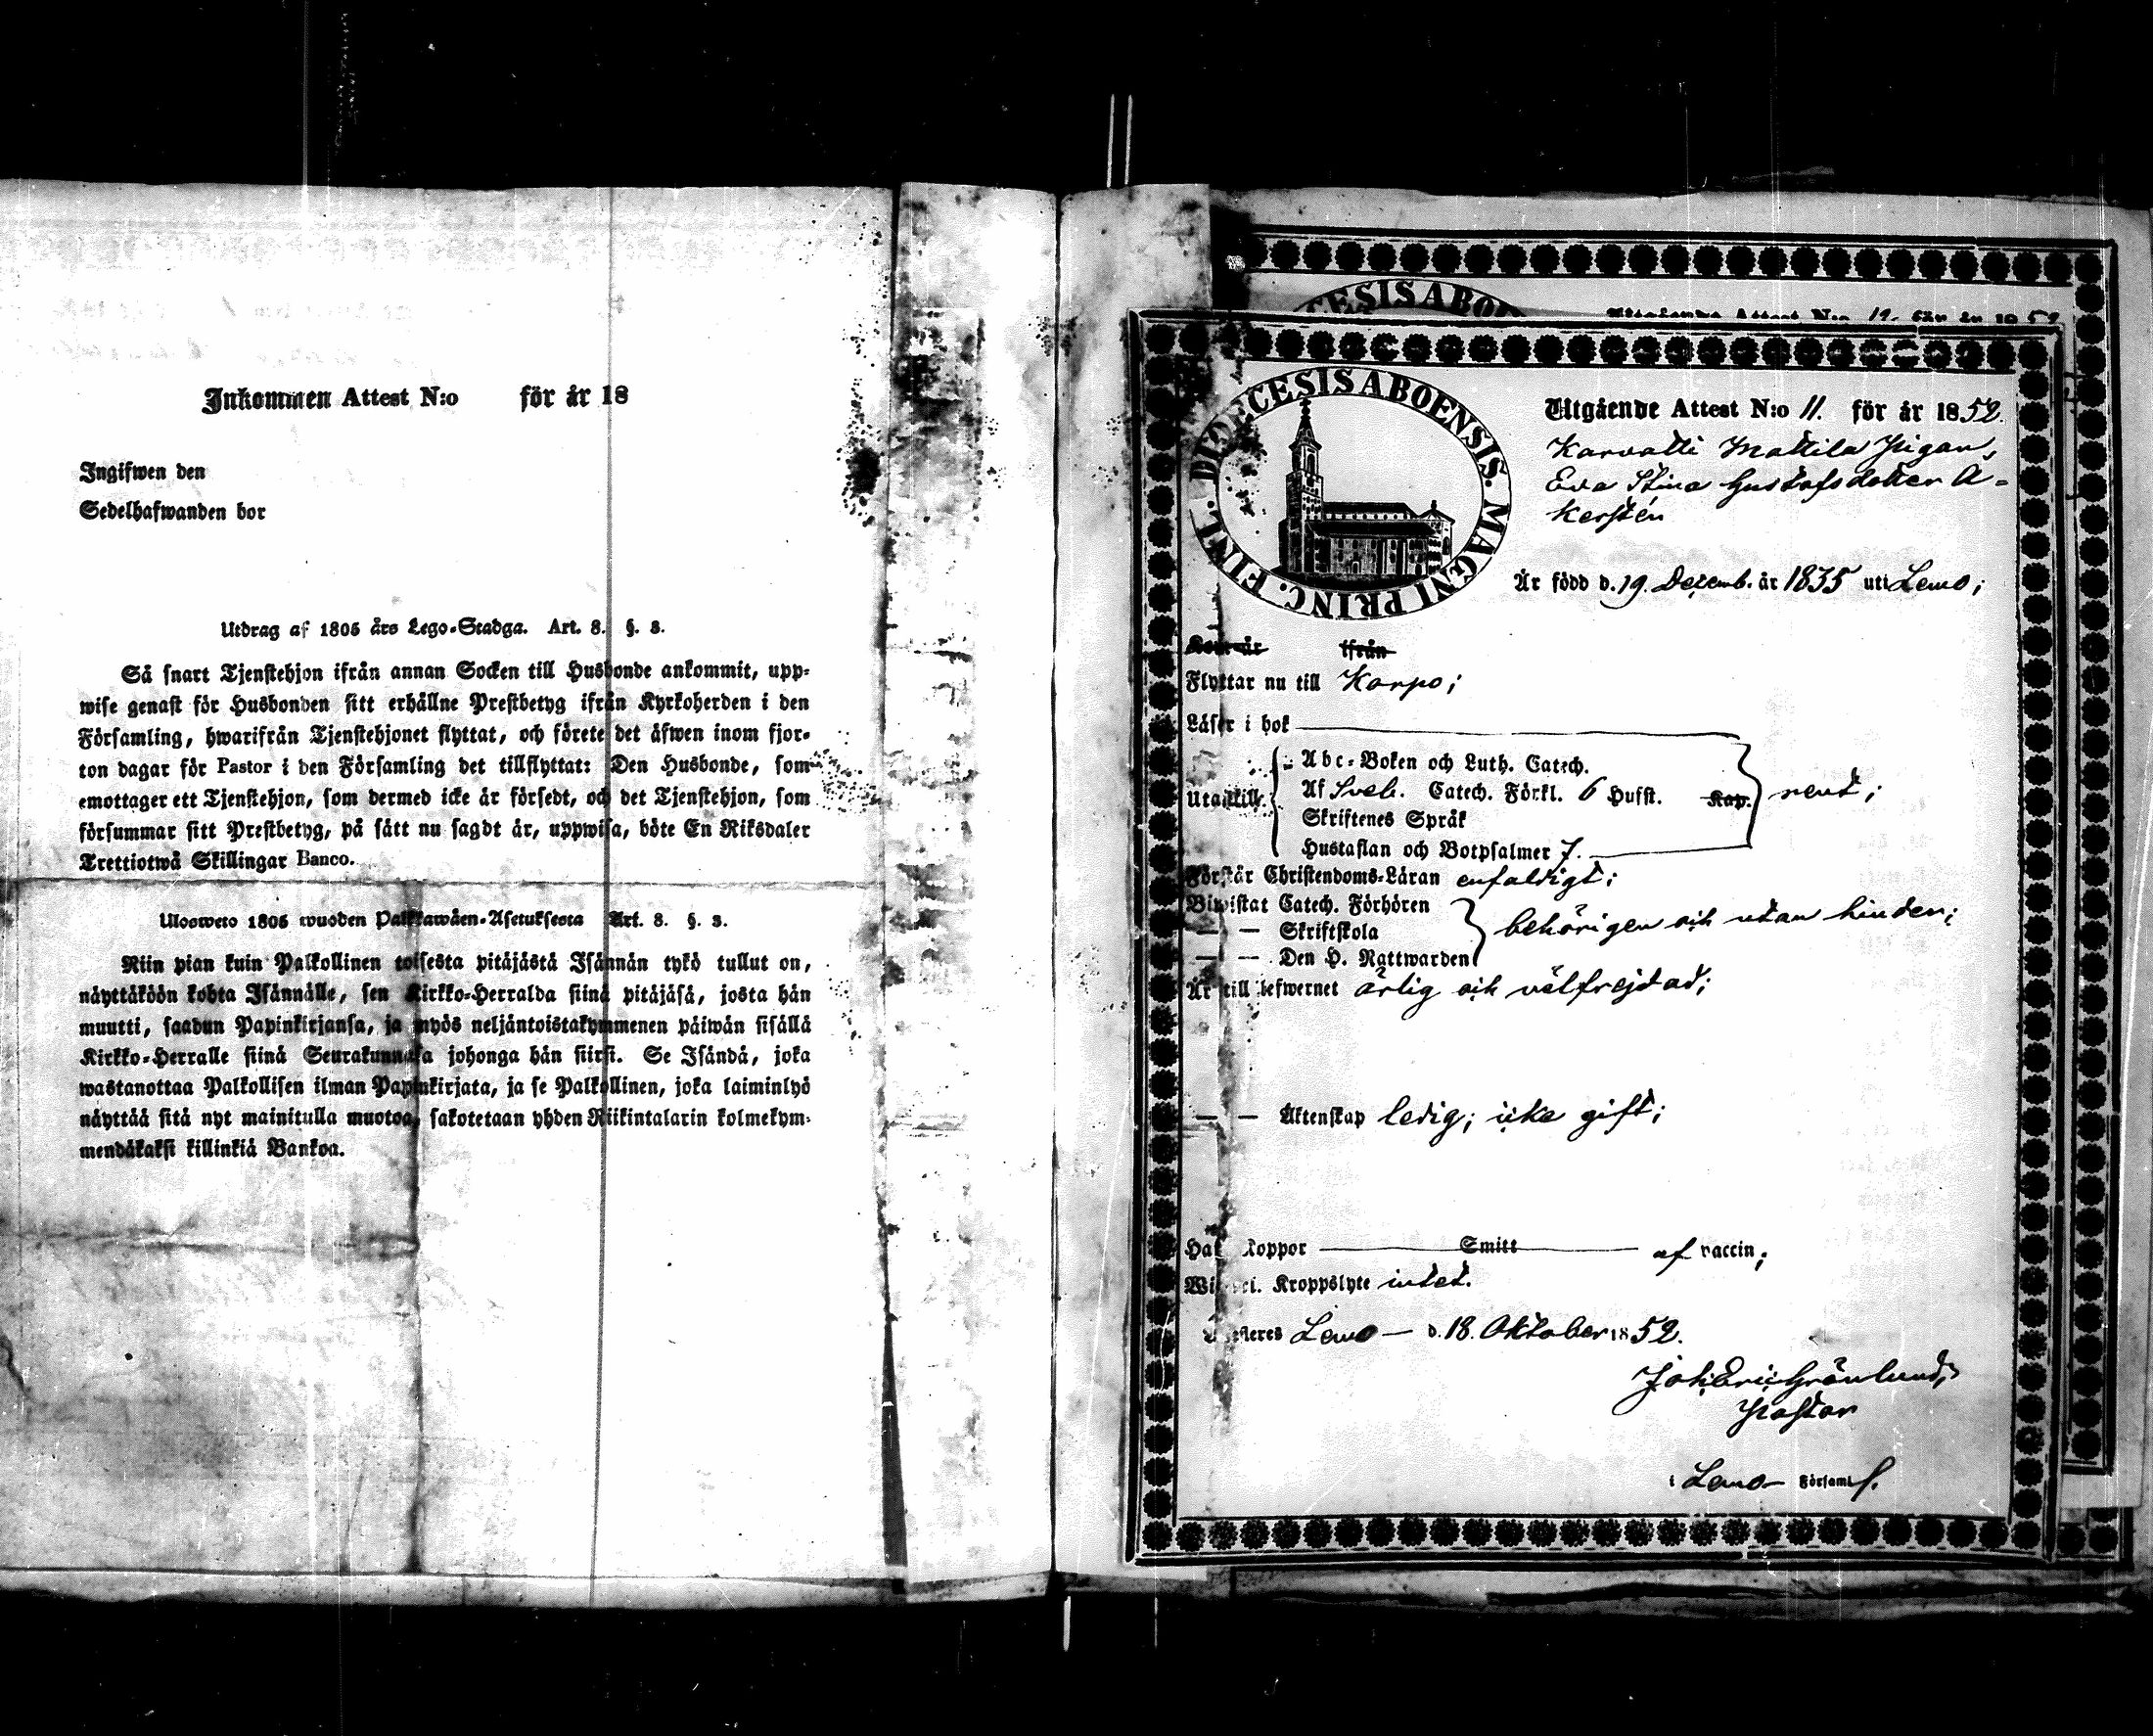 Inkommen Attest N:o för år 18
Ingifwen den
Sedelhafwanden bor
Utdrag af 1805 års Lego-Stadga. Art. 8. §. 3.
Så snart Tjenstehjon ifrån annan Socken till Husbonde ankommit, upp-
wise genast för Husbonden sitt erhållne Prestbetyg ifrån Kyrkoherden i den
Församling, hwarifrån Tjenstehjonet flyttat, och förete det äfwen inom fjor-
ton dagar för Pastor i den Församling det tillflyttat: Den Husbonde, som
emottager ett Tjenstehjon, som dermed icke är försedt, och det Tjenstehjon, som
försummar sitt Prestbetyg, på sätt nu sagdt är, uppwisa, böte En Riksdaler
Trettiotwå Skillingar Banco.
Ulosweto 1805 wuoden Palkkawäen-Asetuksesta Art. 8. §. 3.
Niin pian kuin Palkollinen toisesta pitäjästä Isännän tykö tullut on,
näyttäköön kohta Isännälle, sen Kirkko-Herralda siinä pitäjäsä, josta hän
muutti, saadun Papinkirjansa, ja myös neljäntoistakymmenen päiwän sisällä
Kirkko-Herralle siinä Seurakunnasa johonga hän siirsi. Se Isändä, joka
wastanottaa Palkollisen ilman Papinkirjata, ja se Palkollinen, joka laiminlyö
näyttää sitä nyt mainitulla muotoa, sakotetaan yhden Riikintalarin kolmekym-
mendäkaksi killinkiä Bankoa.
CESIS ABO
Utgående Attest N:o 12. för år 1852
DIOECESIS ABOENSIS. MAGNI PRINC. FINL.
Utgående Attest N:o 11. för år 1852.
Karvatti Mattila Pigan,
Eva Stina Gustafsdotter A-
kerstén
Är född d. 19. Dezemb. år 1835 uti Lemo;
Kom år ifrån
Flyttar nu till Korpo;
Läser i bok
Utantill.
Abc-Boken och Luth. Catech.
Af Sveb. Catech. Förkl. 6 Hufst. Kap. rent;
Skriftenes Språk
Hustaflan och Botpsalmer 7.
Förstår Christendoms-Läran enfaldigt;
Biwistat Catech. Förhören
— — Skriftskola behörigen och utan hinder;
— — Den H. Nattwarden
Är till lefwernet ärlig och välfrejdad;
— — Äktenskap ledig; icke gift;
Haft Koppor Smitt af vaccin;
Kroppslyte intet.
Attesteres Lemo — d. 18. Oktober 1852.
Joh: Eric Grönlund,
Pastor
i Lemo Församl.